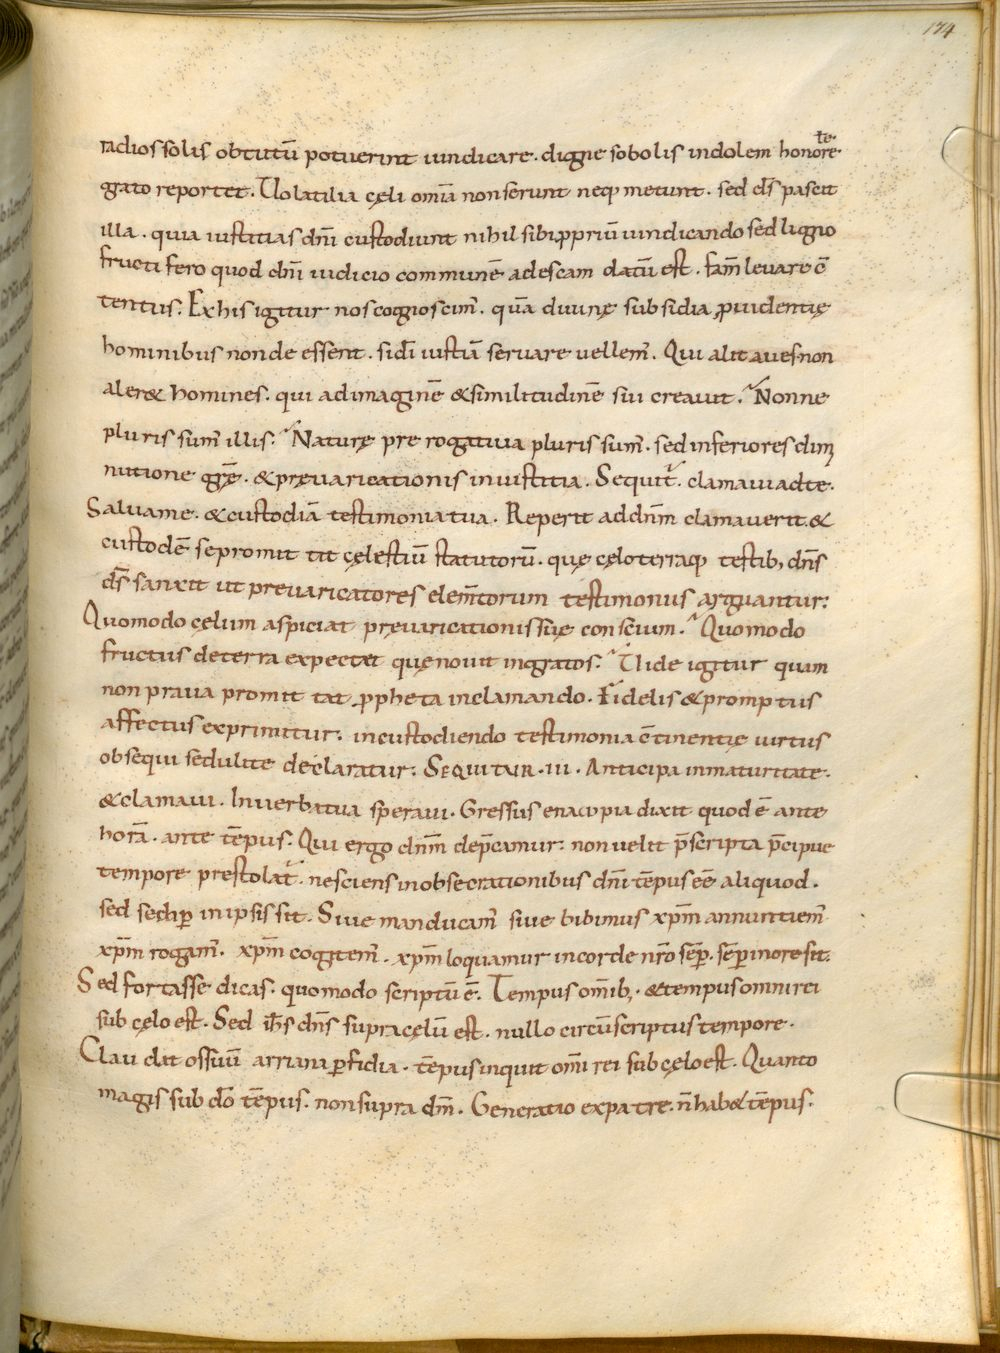 174
radios solis obtutū potuerint uindicare. digne sobolis indolem honore
gato reportet. Uolatilia cęli om̄ia non serunt neq; metunt. sed d̄s pascit
illa. quia iustitias dn̄i custodiunt nihil sibi ꝓpriū uindicando sed ligno
fructifero quod dn̄i iudicio communē ad escam datū est. fam̄ leuare c̄
tentus. Ex his igitur nos cognoscim̄. quā diuinę subsidia ꝓuidentię
hominibus non deessent. si dī iustīā seruare uellem̄. Qui alit aues non
aler& homines. qui ad imaginē & similitudinē sui creauit. Nonne
pluris sum̄ illis. Naturę prerogatiua pluris sum̄. sed inferiores dimi
nutione gr̄ę. & pręuaricationis iniustitia. Sequit̄. clamaui ad te.
Saluame. & custodiā testimonia tua. Reperit ad dn̄m clamauerit. &
custodē se promittit cęlestiū statutorū. quę cęlo terraq; testib; dn̄s
d̄s sanxit ut preuaricatores elem̄torum testimoniis arguantur.
Quomodo cęlum aspiciat pręuaricationis suę conscium. Quomodo
fructus de terra expectet quę nouit ingratos. Uide igitur quam
non praua promittat ꝓpheta inclamando. Fidelis & promptus
affectus exprimitur. in custodiendo testimonia c̄tinentię uirtus
obsequii sedulite declaratur. SEQUITUR. III. Anticipa in maturitate.
& clamaui. In uerba tua speraui. Gressus enaωpia dixit quod ē ante
horā. ante tēpus. Qui ergo dn̄m dep̄camur. non uelit p̄scripta p̄cipue
tempore prestolat̄. nesciens in obsecrationibus dn̄i tēpus eē aliquod.
sed semꝑ in ipsis sit. Siue manducam̄ siue bibimus xp̄m annuntiem̄
xp̄m rogam̄. xp̄m cogitem̄. xp̄m loquamur in corde nr̄o sēꝑ. sēꝑ in ore sit.
Sed fortasse dicas. quomodo scriptū ē. Tempus om̄ib;. & tempus omni rei
sub cęlo est. Sed ih̄s dn̄s supra cęlū est. nullo circūscriptus tempore.
Claudit os suū arriana ꝑfidia. tēpus inquit om̄i rei sub cęlo est. Quanto
magis sub dō tēpus. non supra dm̄. Generatio ex patre. n̄ hab& tēpus.